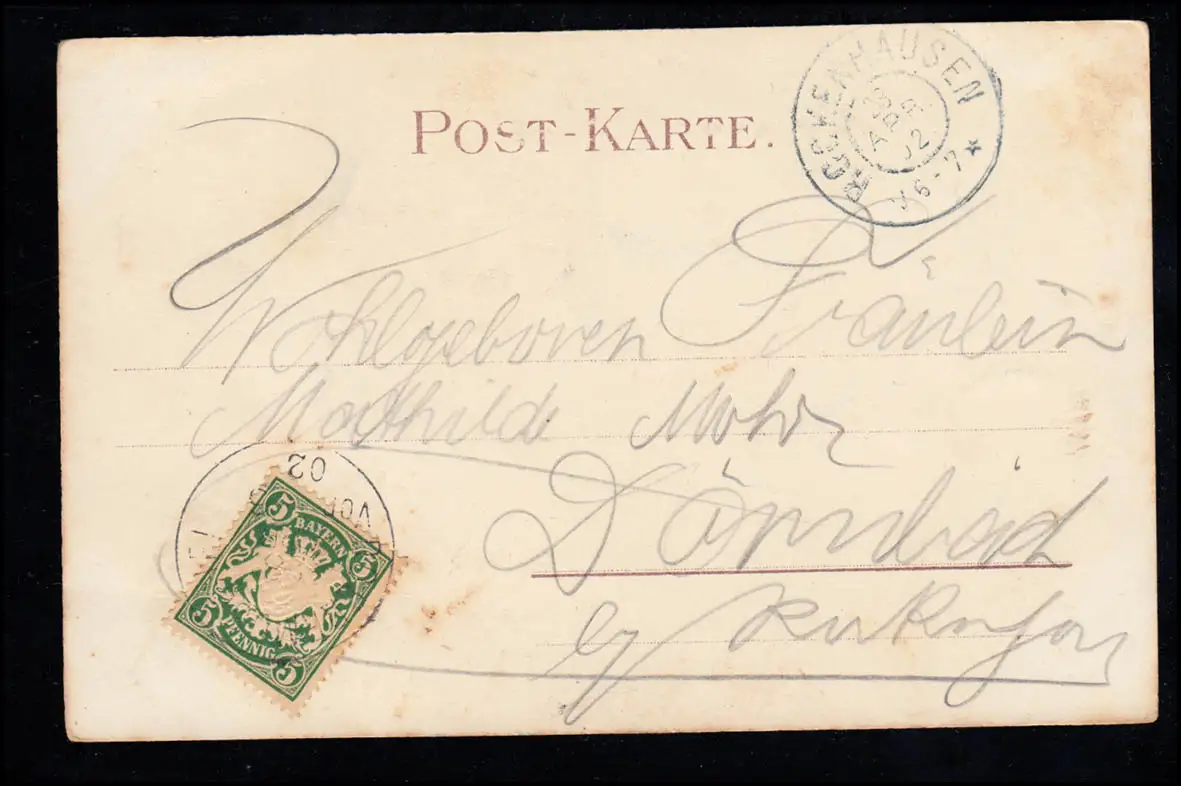 POST-KARTE.
ROCKENHAUSEN
V 6-7 ★
02
Wohlgeboren Fräulein
Mathilde Mohr
Dörnbach
02
5 BAYERN 5
5 PFENNIG 5